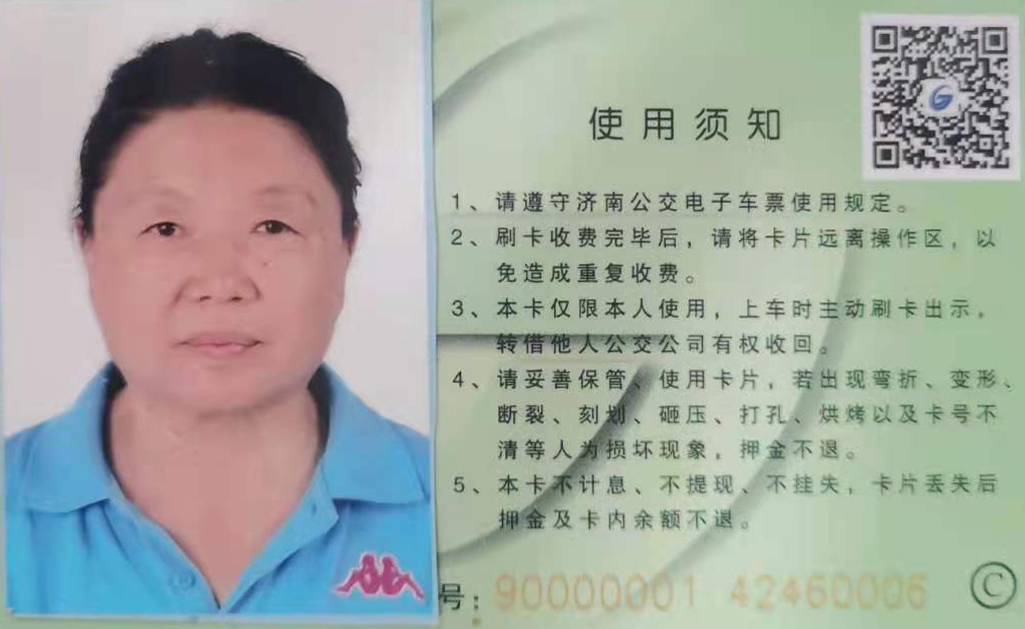 使用须知
1、请遵守济南公交电子车票使用规定。
2、刷卡收费完毕后，请将卡片远离操作区，以
免造成重复收费。
3、本卡仅限本人使用，上车时主动刷卡出示，
转借他人公交公司有权收回。
4、请妥善保管、使用卡片，若出现弯折、变形、
断裂、刻划、砸压、打孔、烘烤以及卡号不
清等人为损坏现象，押金不退。
5、本卡不计息、不提现、不挂失，卡片丢失后
押金及卡内余额不退。
号：90000001 42460006
©